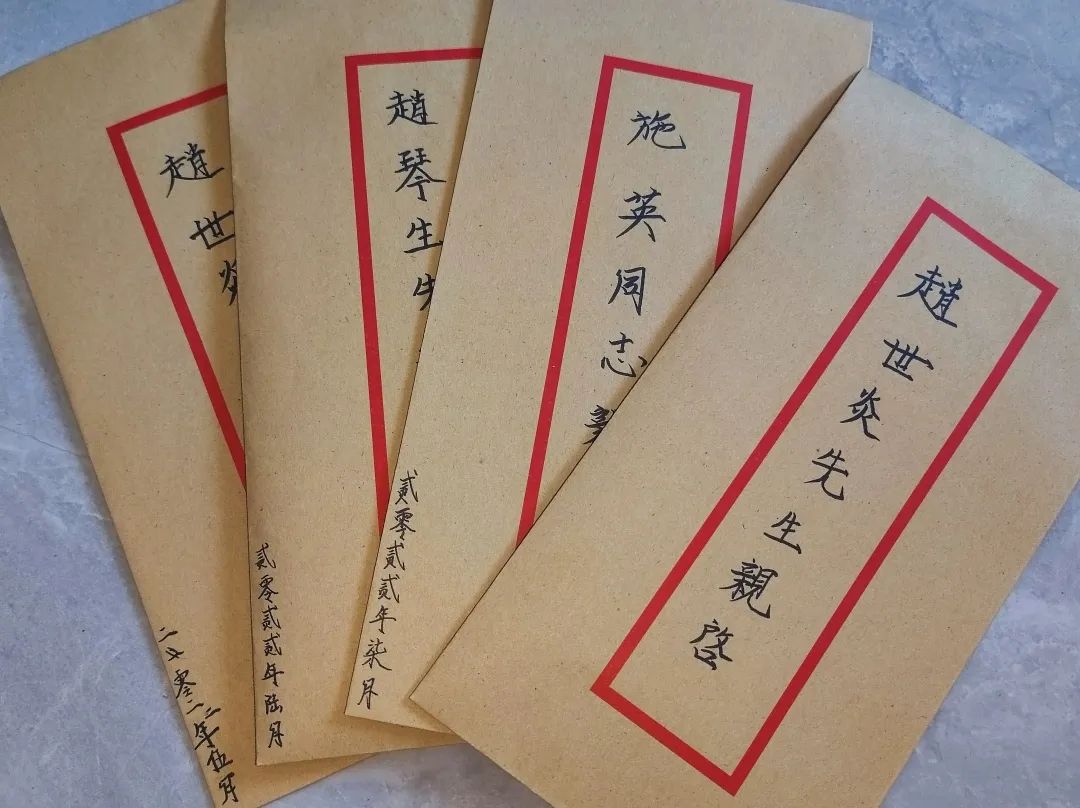 趙世炎
弍零弍弍年伍月
趙琴生先
貳零貳貳年陸月
施英同志親
貳零貳貳年柒月
趙世炎先生親啓